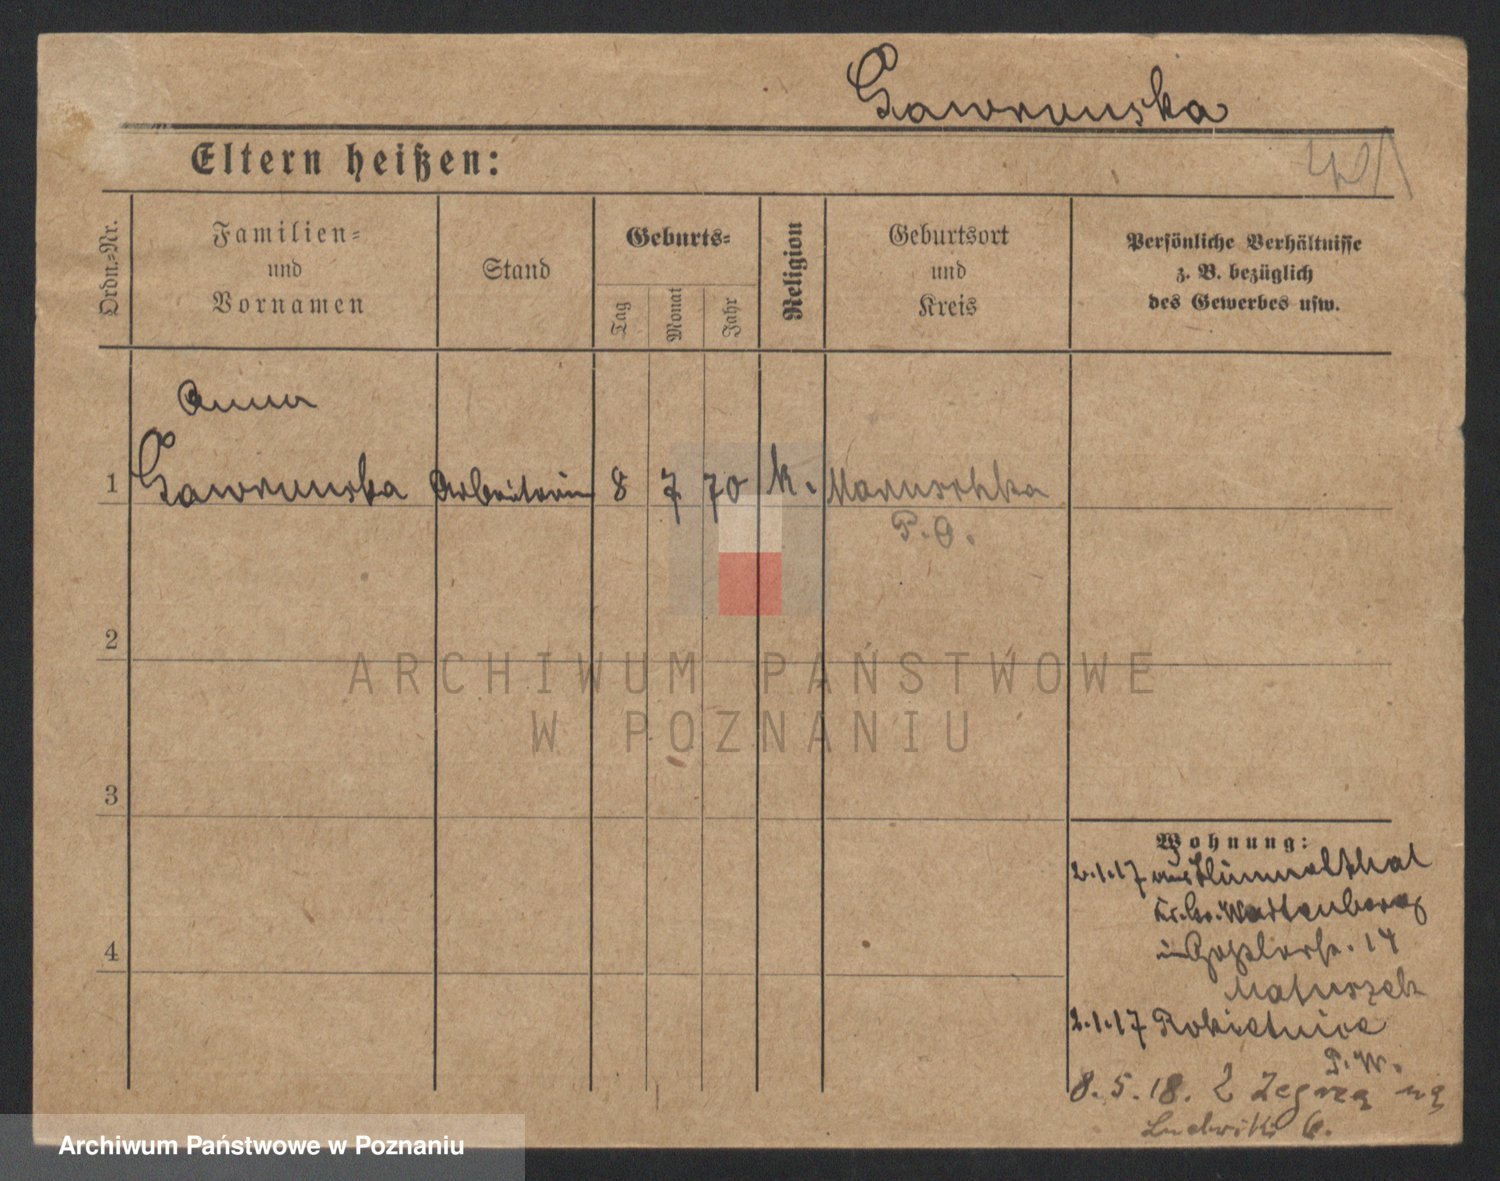 Gawronska
Eltern heißen:
Ordn.-Nr.
Familien-
und
Vornamen
Stand
Geburts-
Tag
Monat
Jahr
Religion
Geburtsort
und
Kreis
Persönliche Verhältnisse
z. B. bezüglich
des Gewerbes usw.
Anna
1 Gawronska Arbeiterin 8 7 70 k. Maruschka
P. O.
2
ARCHIWUM PAŃSTWOWE
W POZNANIU
3
Wohnung:
2.1.17 aus Himmelthal
Kr. Gr. Wartenberg
in 14
Matuszek
2.1.17 Rokietnica
P. W.
8. 5. 18. Z Zegrza na
Ludwiki 6.
4
Archiwum Państwowe w Poznaniu